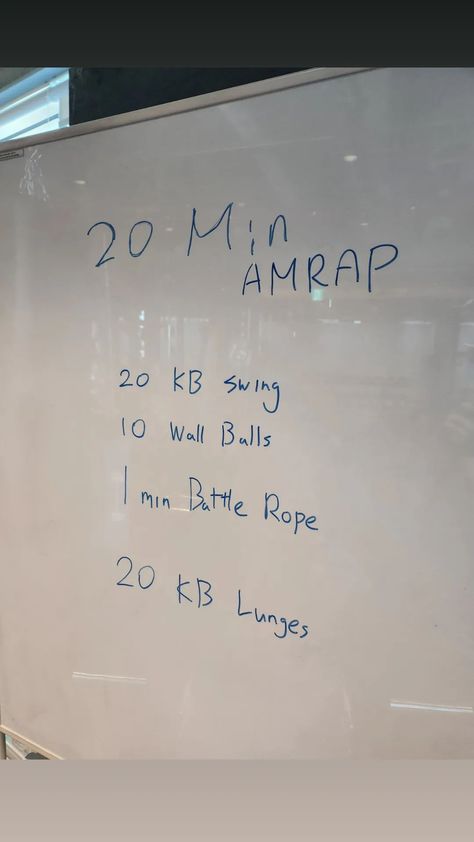 20 Min
AMRAP
20 KB Swing
10 Wall Balls
1 min Battle Rope
20 KB Lunges